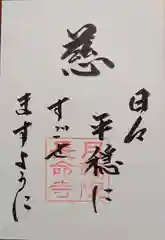 慈
日々
平穏に
すごせ
ますように
長命寺